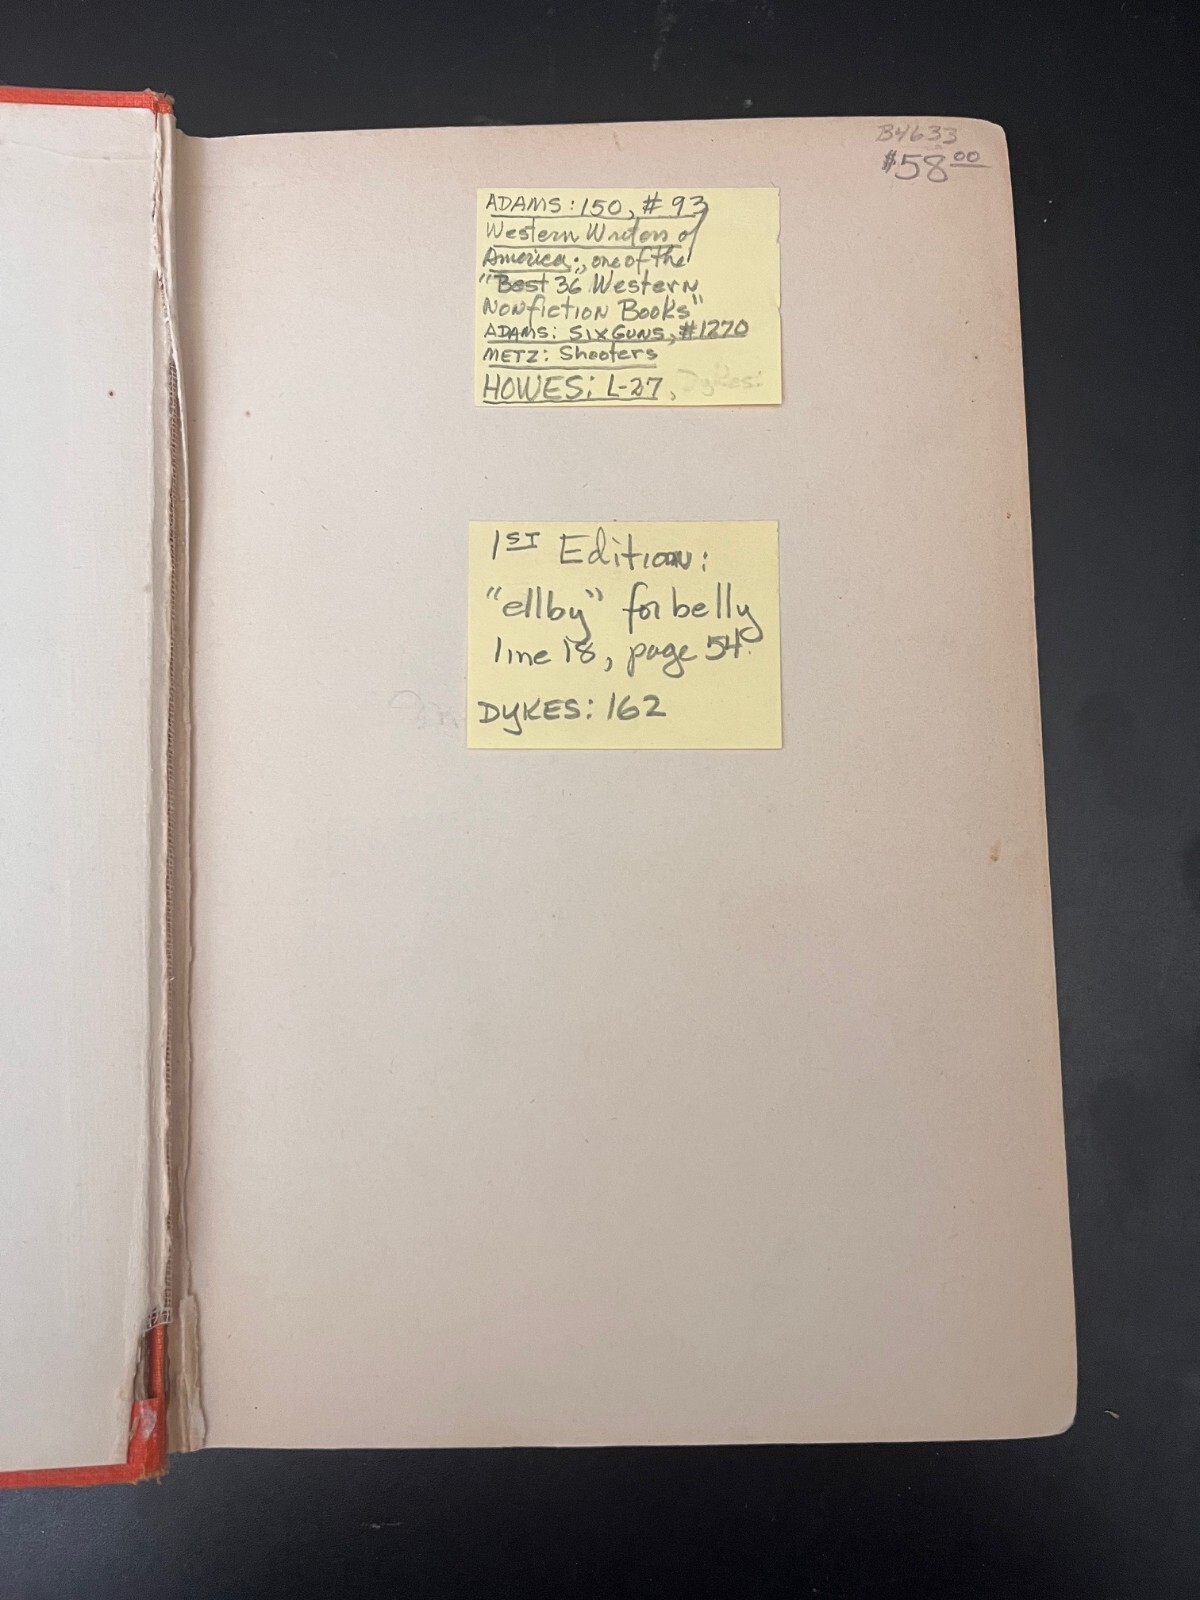 B4633
$58.00
ADAMS: 150, #93
Western Writers of
America;, one of the
"Best 36 Western
Nonfiction Books"
ADAMS: SIXGUNS, #1270
METZ: Shooters
HOWES: L-27, Dykes:
1ST Edition:
"ellby" for belly
line 18, page 54.
DYKES: 162